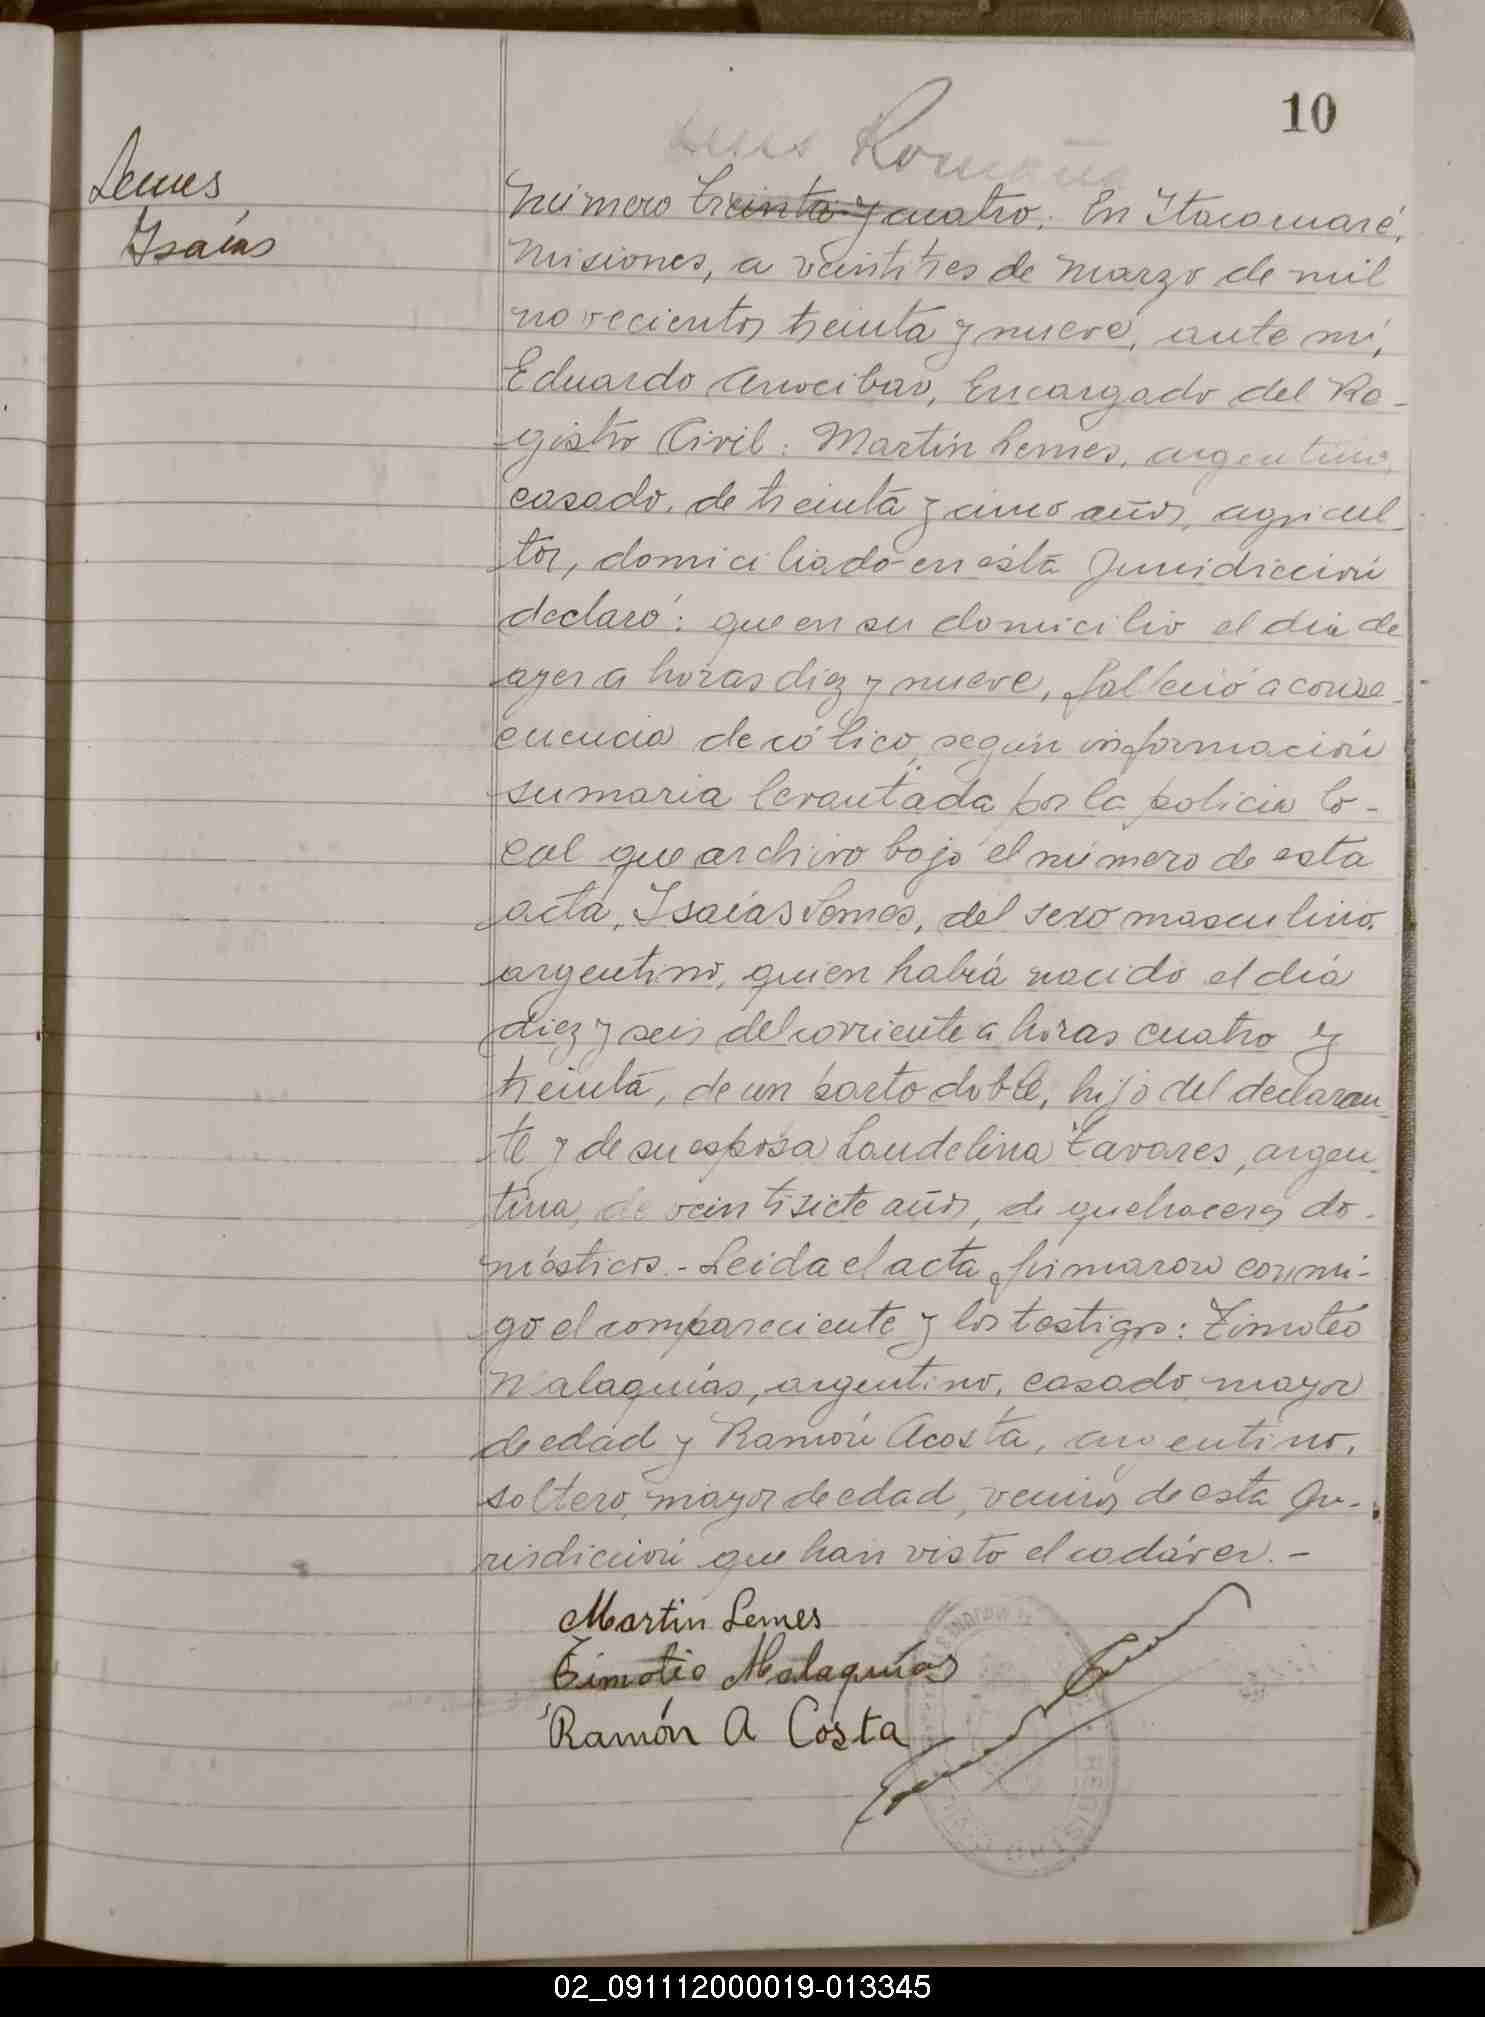 10
Lemes
Isaías
Número treinta y cuatro. En Itacaruaré,
Misiones, a veintitres de Marzo de mil
novecientos treinta y nueve, ante mí,
Eduardo Arocibar, Encargado del Re-
gistro Civil: Martín Lemes, argentino,
casado, de treinta y cinco años, agricul-
tor, domiciliado en ésta Jurisdicción
declaró: que en su domicilio el día de
ayer a horas diez y nueve, falleció a conse-
cuencia de cólico, según información
sumaria levantada por la policia lo-
cal que archivo bajo el número de esta
acta, Isaías Lemes, del sexo masculino,
argentino, quien habiá nacido el día
diez y seis del corriente a horas cuatro y
treinta, de un parto doble, hijo del declaran-
te y de su esposa Laudelina Tavares, argen-
tina, de veintisiete años, de quehaceres do-
mésticos.- Leida el acta firmaron conmi-
go el compareciente y los testigos: Timoteo
Malaquías, argentino, casado, mayor
de edad y Ramón Acosta, argentino,
soltero, mayor de edad, vecinos de esta Ju-
risdicción que han visto el cadáver.-
Martin Lemes
Timotio Malaquías
Ramón A Costa
REGISTRO CIVIL
02_091112000019-013345